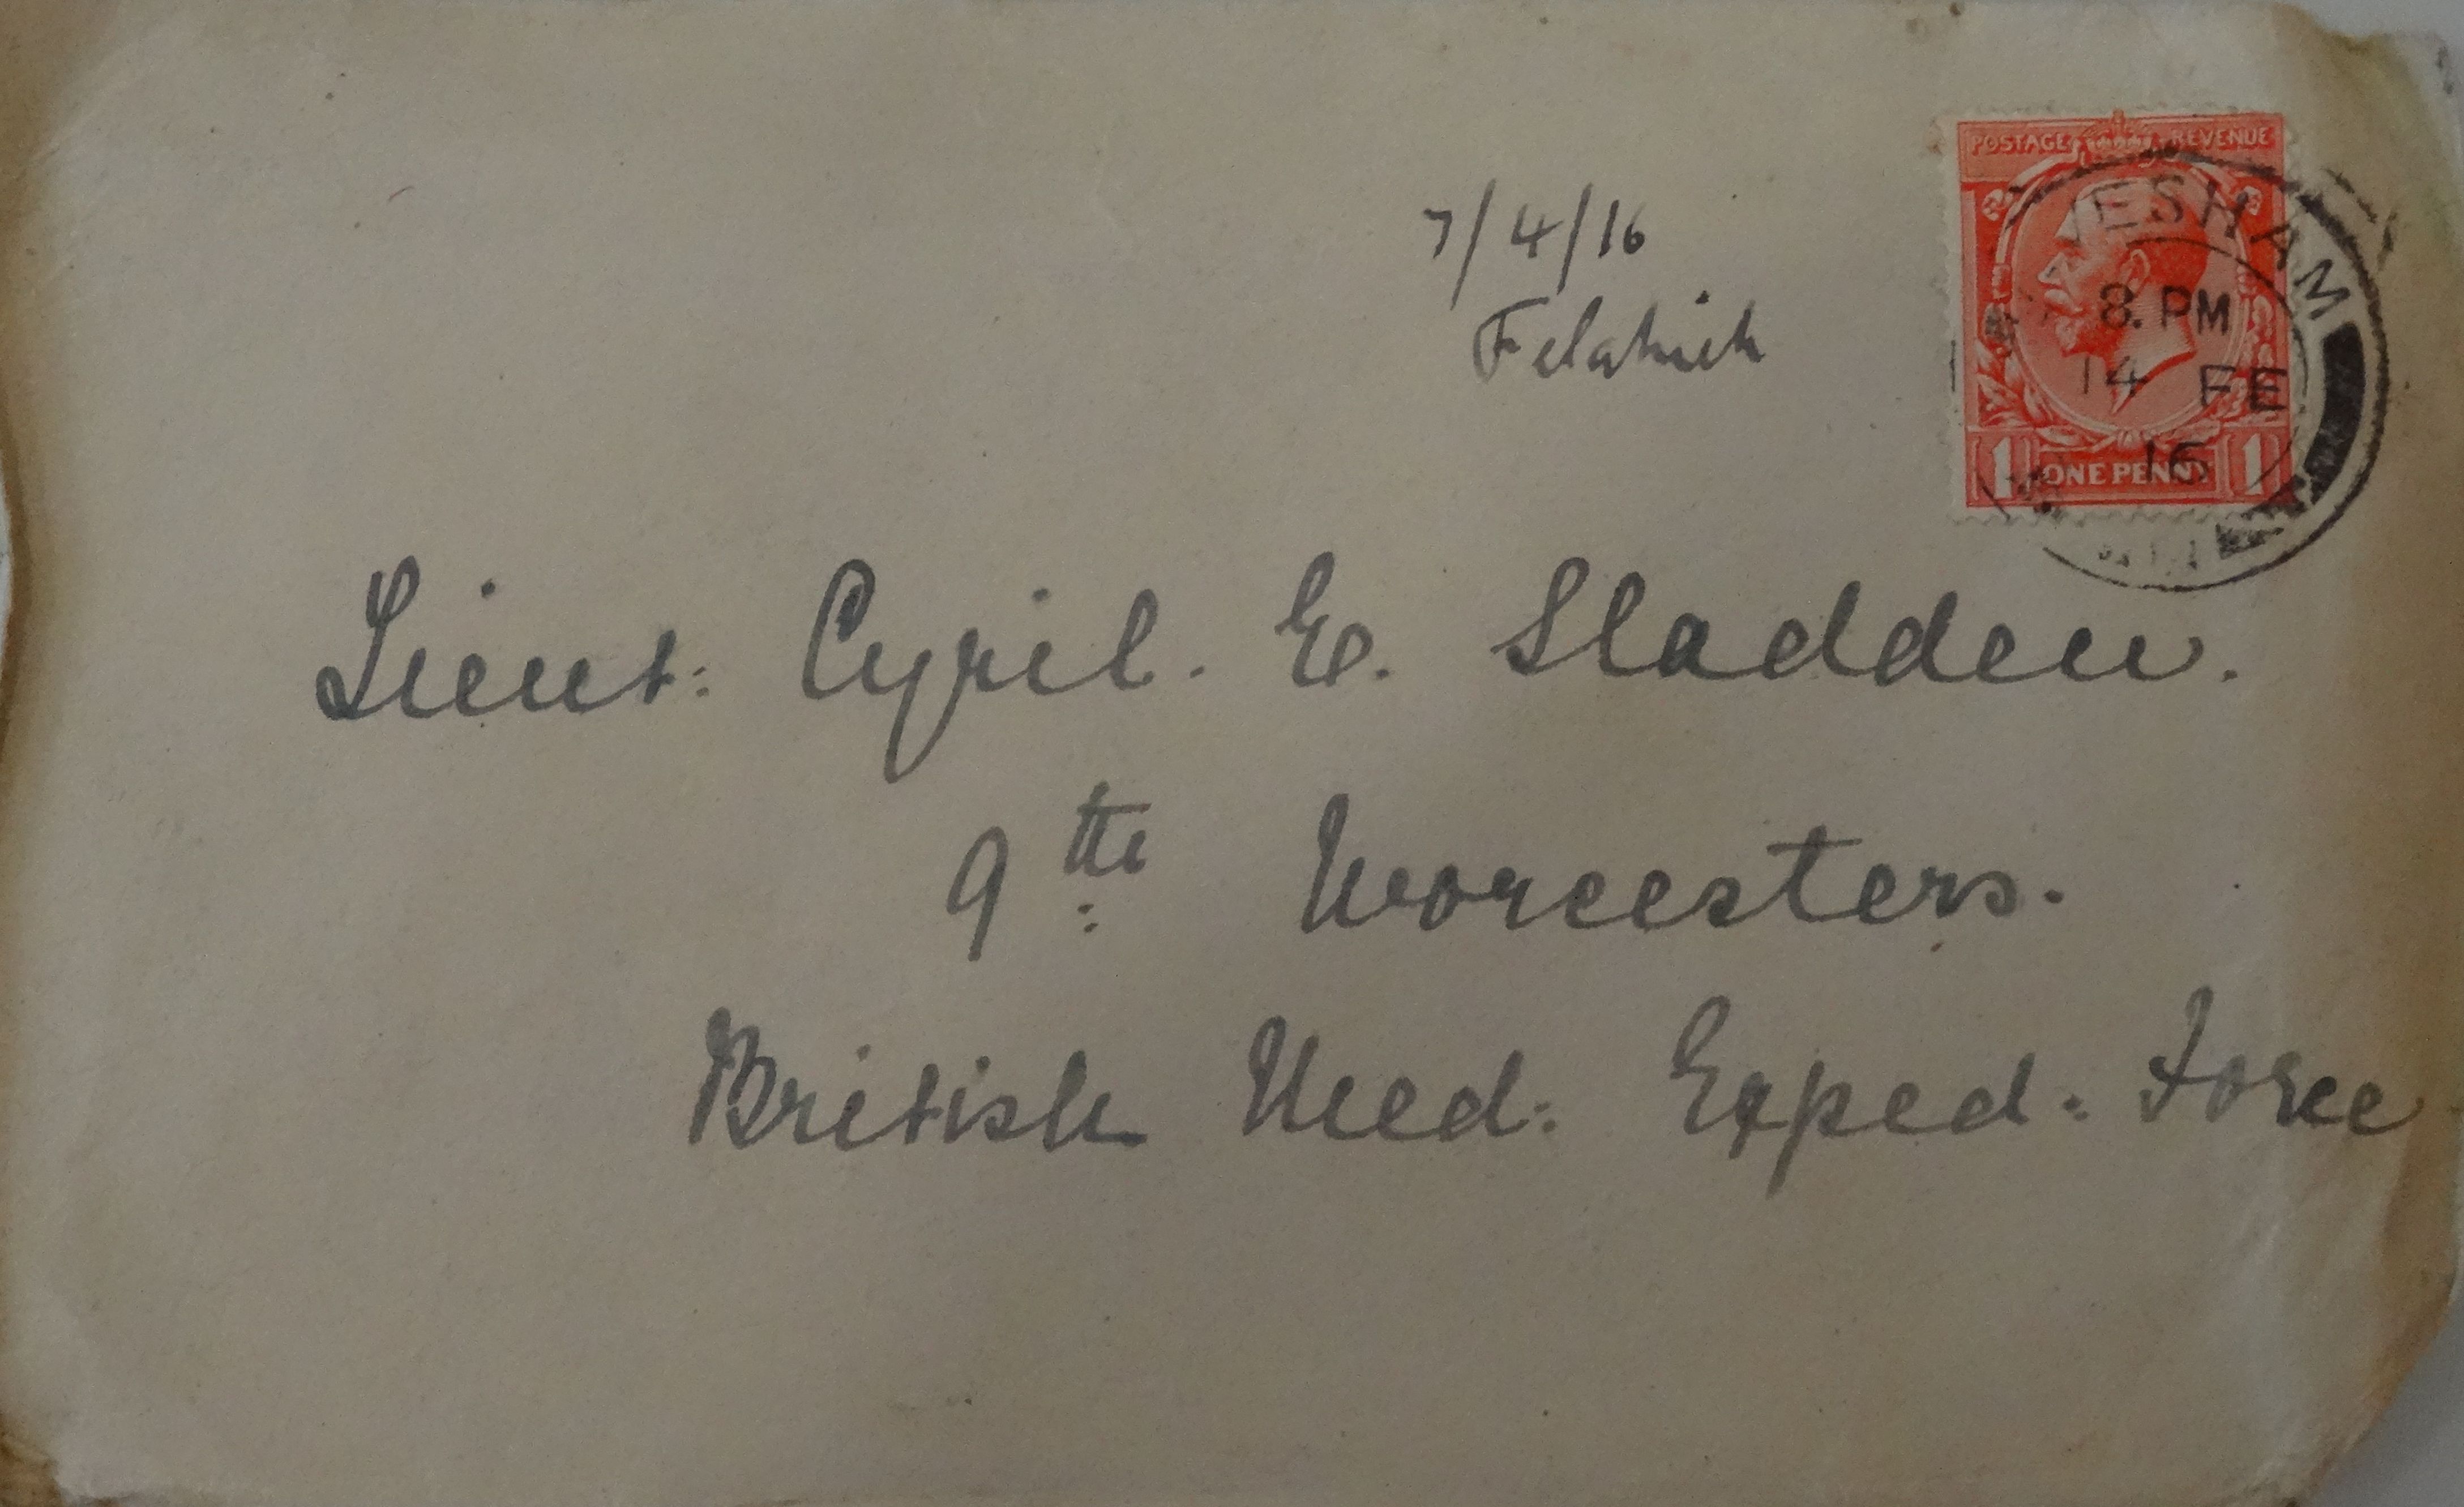 POSTAGE REVENUE
VESHAM
8. PM
14 FE
16
1 ONE PENNY 1
7/4/16
Felahieh
Lieut: Cyril. E. Sladden.
9th Worcesters.
British Med: Exped: Force